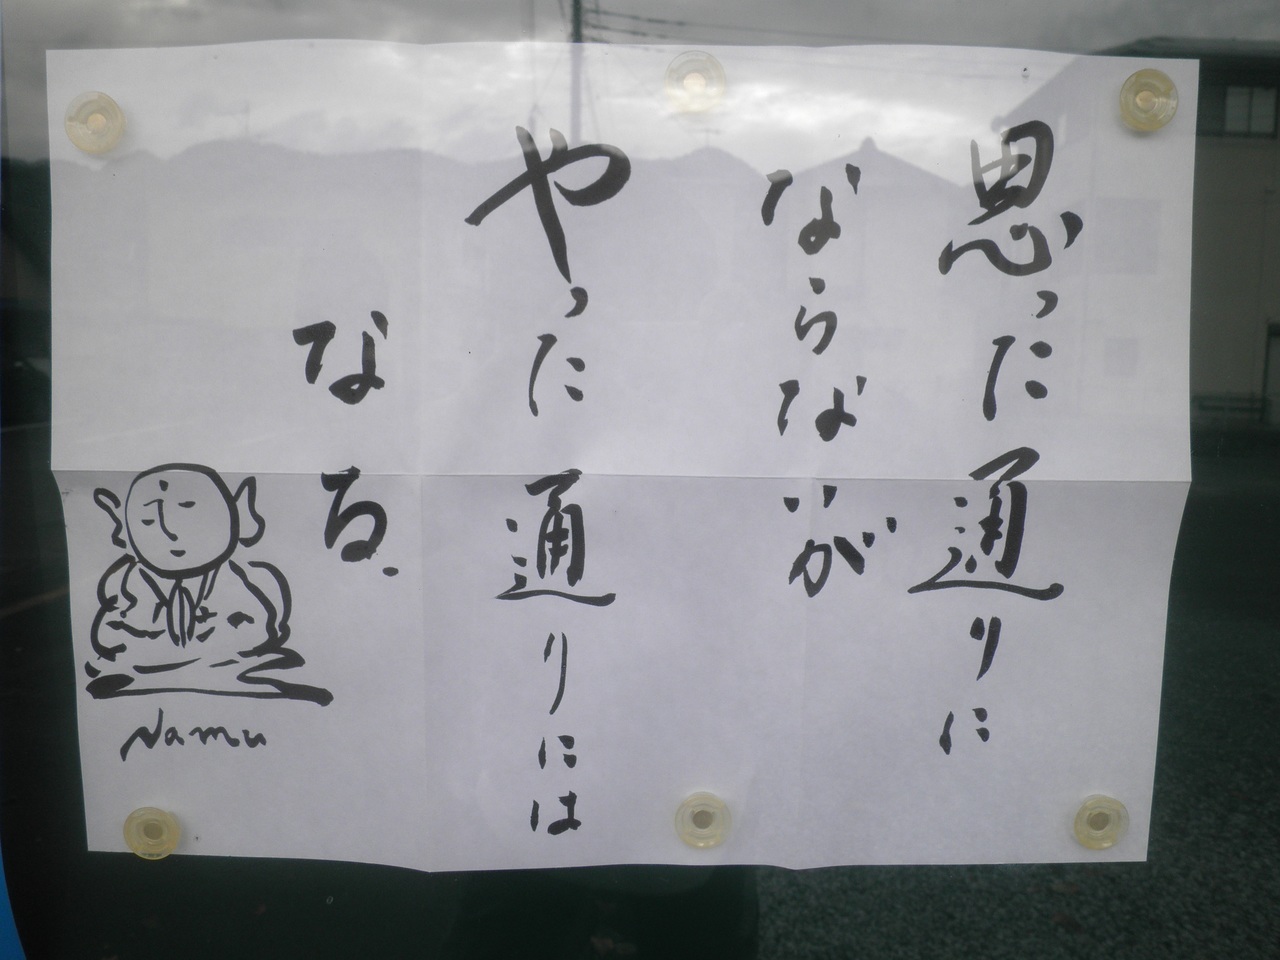 思った通りに
ならないが
やった通りには
なる.
Namu